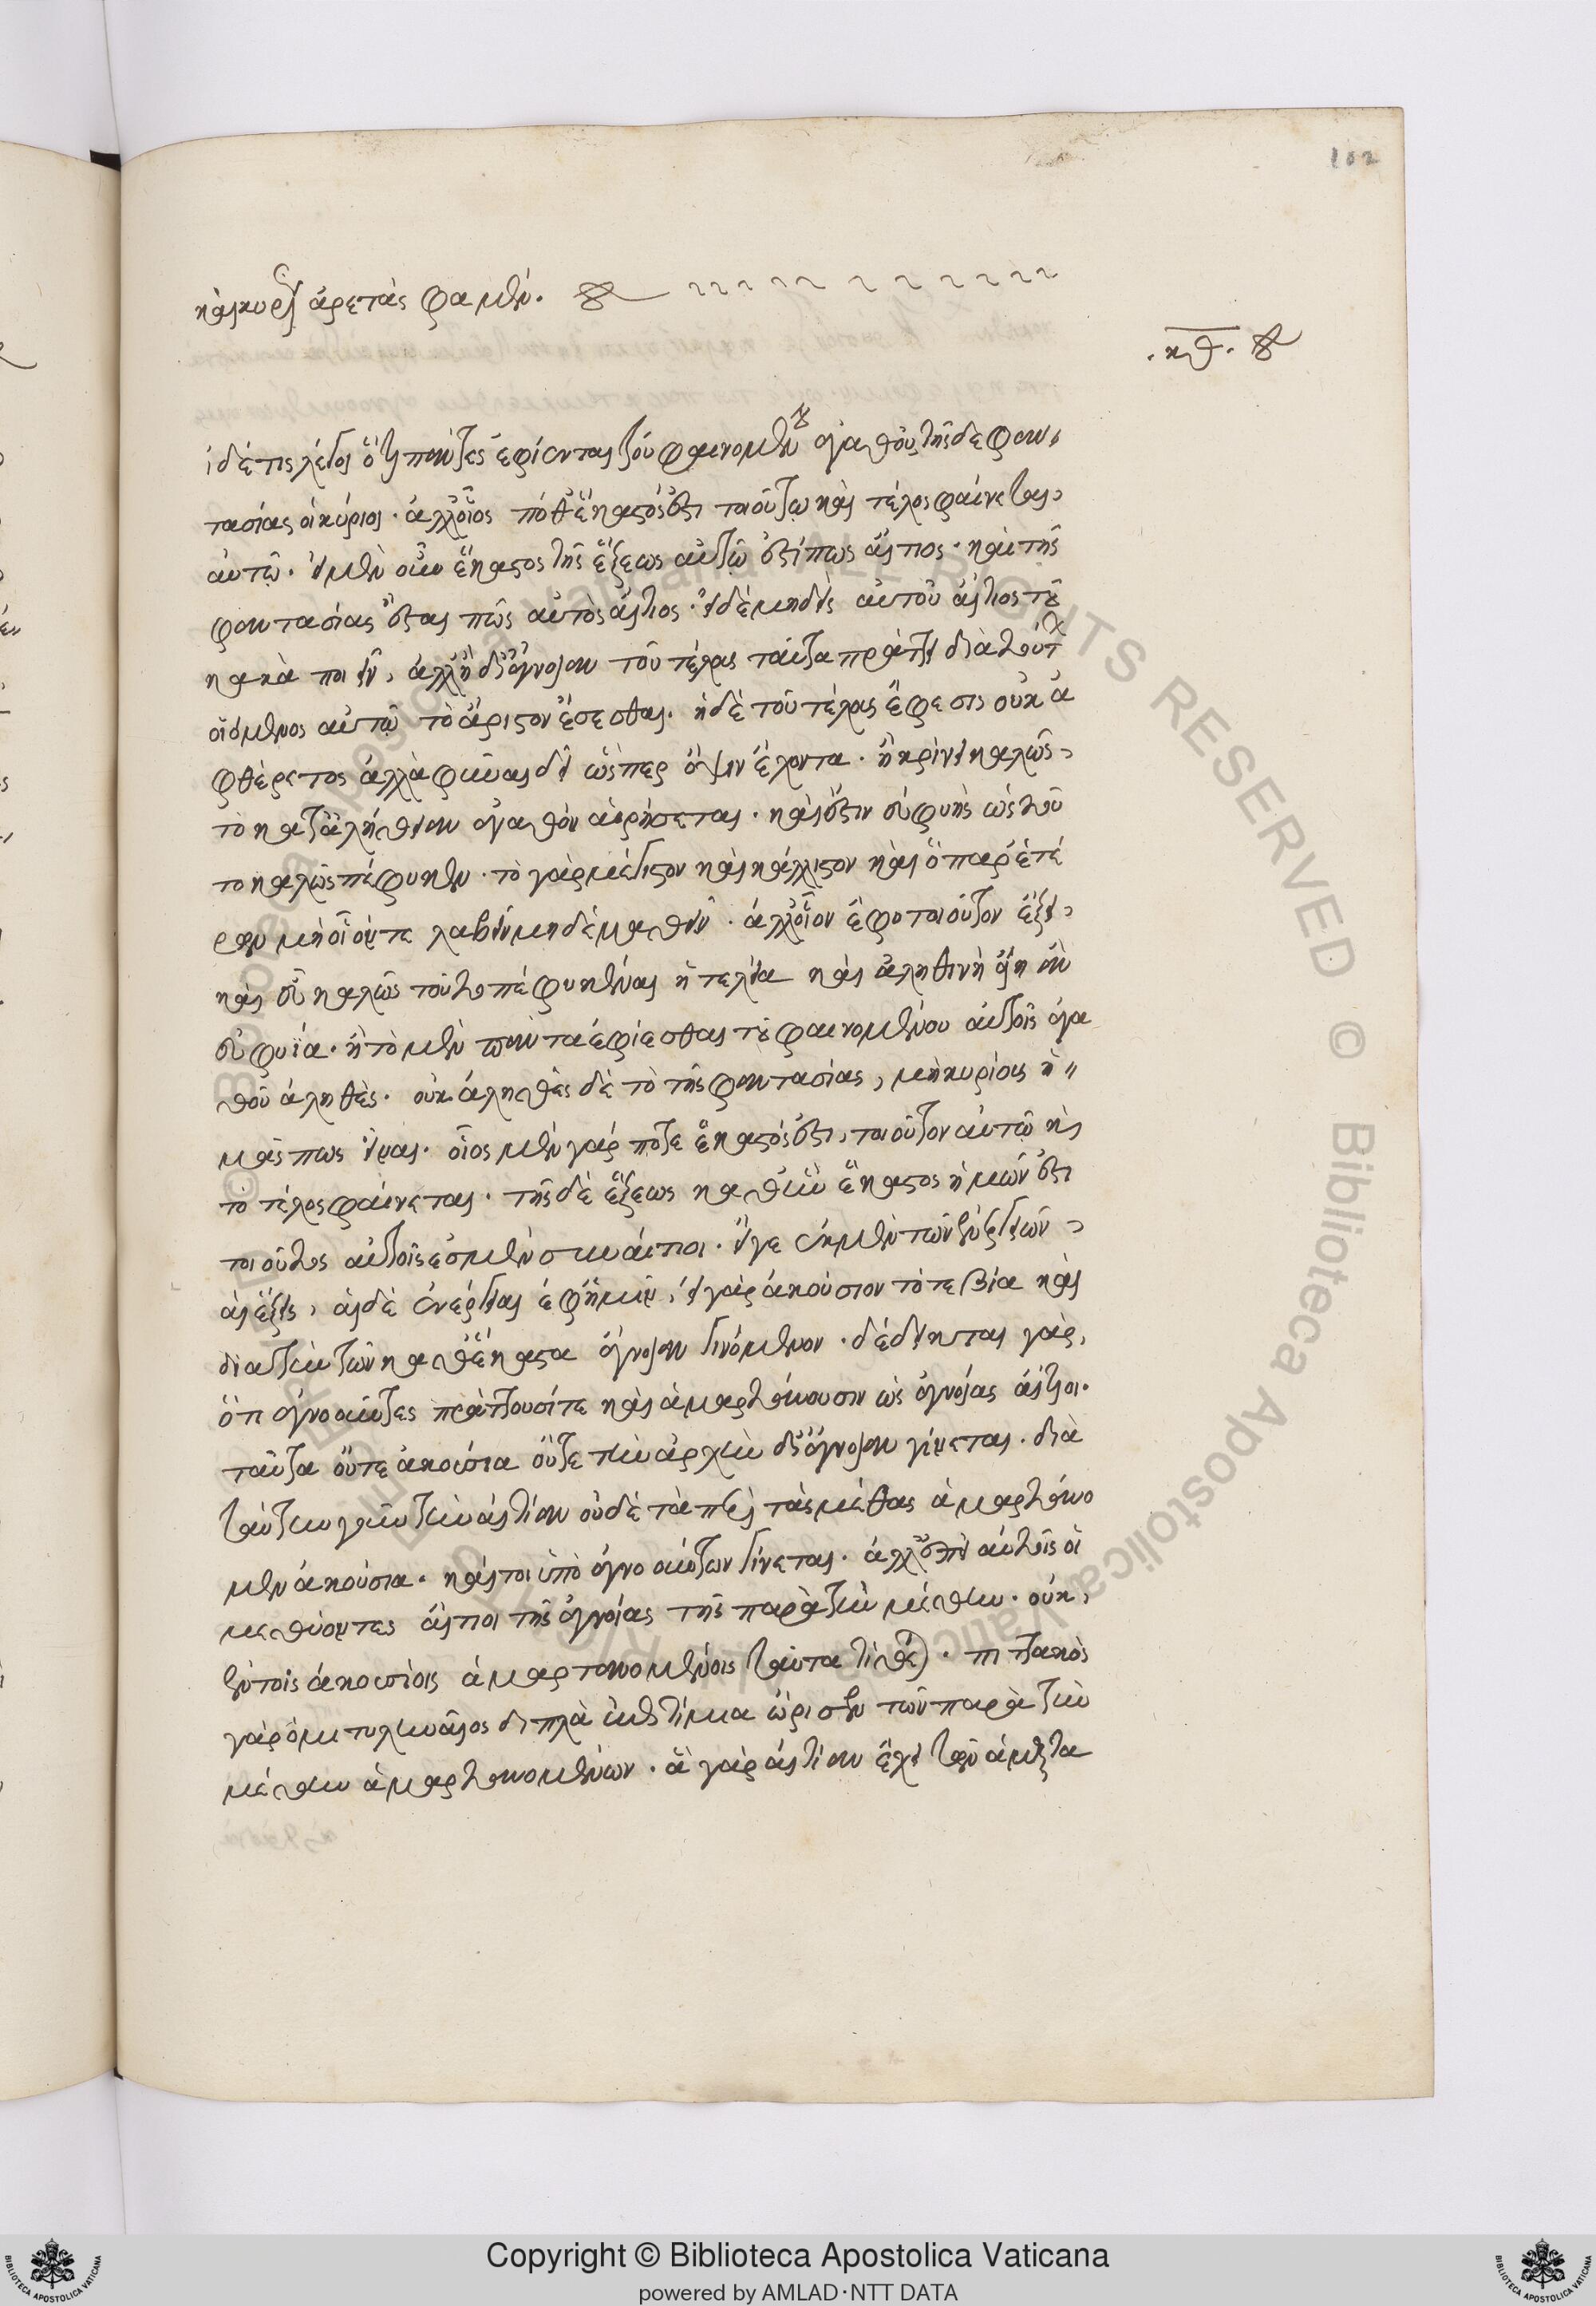 102
καὶ κυρίως ἀρετάς φαμεν.
.κθ.
ι δέ τις λέγοι ὅτι πάντες ἐφίενται τοῦ φαινομένου ἀγαθοῦ τῆς δὲ φαν
τασίας οὐ κύριοι. ἀλλ' οἷος ποθ' ἕκαστός ἐστι τοιοῦτο καὶ τέλος φαίνεται
αὐτῷ. εἰ μὲν οὖν ἕκαστος τῆς ἕξεως αὐτῷ ἐστί πως αἴτιος. καὶ τῆς
φαντασίας ἔσται πῶς αὐτὸς αἴτιος. εἰ δὲ μηδεὶς αὐτοῦ αἴτιος τοῦ
κακὰ ποιεῖν, ἀλλὰ δι' ἄγνοιαν τοῦ τέλους ταῦτα πράττει διὰ τούτων
οἰόμενος αὐτῷ τὸ ἄριστον ἔσεσθαι. ἡ δὲ τοῦ τέλους ἔφεσις οὐκ α
φθέρετος ἀλλὰ φῦναι δεῖ ὥσπερ ὄψιν ἔχοντα. ᾗ κρίνει καλῶς
τὸ κατ' ἀλήθειαν ἀγαθὸν αἱρήσεται. καὶ ἔστιν εὐφυὴς ᾧ τοῦ
το καλῶς πέφυκεν. τὸ γὰρ μέγιστον καὶ κάλλιστον καὶ ὃ παρ' ἑτέ
ρου μὴ οἷόν τε λαβεῖν μηδὲ μαθεῖν. ἀλλ' οἷον ἔφυ τοιοῦτον ἕξει
καὶ εὖ καλῶς τοῦτο πεφυκέναι ἡ τελεία καὶ ἀληθινὴ ἂν εἴη
εὐφυΐα. ἢ τὸ μὲν πάντα ἐφίεσθαι τοῦ φαινομένου αὐτοῖς ἀγα
θοῦ ἀληθές. οὐκ ἀληθὲς δὲ τὸ τῆς φαντασίας, μὴ κυρίους ἡ
μᾶς πως εἶναι. οἷος μὲν γάρ ποτε ἕκαστός ἐστι, τοιοῦτον αὐτῷ καὶ
τὸ τέλος φαίνεται. τῆς δὲ ἕξεως καθ' ἣν ἕκαστος ἡμῶν ἐστι
τοιοῦτος αὐτοῖς ἐσμὲν συναίτιοι. εἴγε ἐκ μὲν τῶν ἐνεργειῶν
αἱ ἕξεις, αἱ δὲ ἐνέργειαι ἐφ' ἡμῖν, εἰ γὰρ ἀκούσιον τό τε βία καὶ
δια τὴν τῶν καθ' ἕκαστα ἄγνοιαν γινόμενον. δέδεικται γὰρ,
ὅτι ἀγνοοῦντες πράττουσί τε καὶ ἁμαρτάνουσιν ὡς ἀγνοίας αἴτιοι.
ταῦτα οὔτε ἀκούσια οὔτε τὴν ἀρχὴν δι' ἄγνοιαν γίνεται. διὰ
ταύτην γοῦν τὴν αἰτίαν οὐδὲ τὰ περὶ τὰς μέθας ἁμαρτανό
μεν ἀκούσια. καίτοι ὑπὸ ἀγνοούντων γίνεται. ἀλλ' ἐπεὶ αὐτοῖς οἱ
μεθύοντες αἴτιοι τῆς ἀγνοίας τῆς παρὰ τὴν μέθην. οὐκ
ἐν τοῖς ἀκουσίοις ἁμαρτανομένοις ταῦτα τίθεται. πιττακὸς
γὰρ ὁ μιτυληναῖος διπλᾶ ἐπιτίμια ὥρισεν τῶν παρὰ τὴν
μέθην ἁμαρτανομένων. ἃ γὰρ αἰτίαν ἔχει τοῦ ἁμαρτα